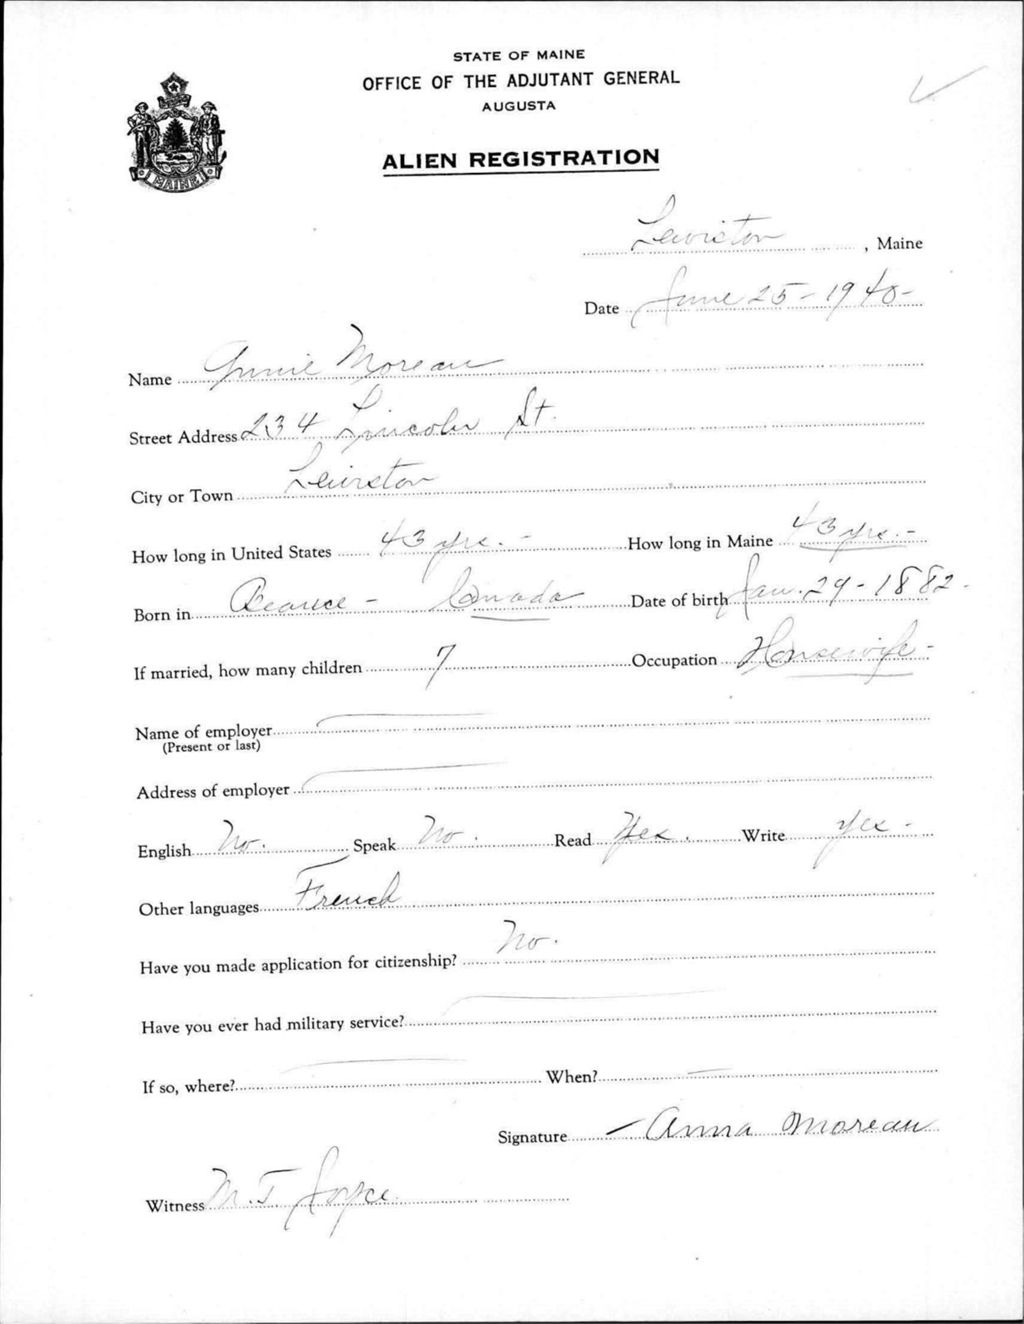 STATE OF MAINE
OFFICE OF THE ADJUTANT GENERAL
AUGUSTA
ALIEN REGISTRATION
MAINE
Lewiston, Maine
Date June 25-1940-
Name Annie Moreau
Street Address 234 Lincoln St.
City or Town Lewiston
How long in United States 43 yrs. - How long in Maine 43 yrs. -
Born in Beauce - Canada Date of birth Jan. 29-1882-
If married, how many children 7 Occupation Housewife-
Name of employer
(Present or last)
Address of employer
English No. Speak No. Read Yes. Write yes -
Other languages French
Have you made application for citizenship? No.
Have you ever had military service?
If so, where? When?
Signature Anna Moreau
Witness M. J. Joyce